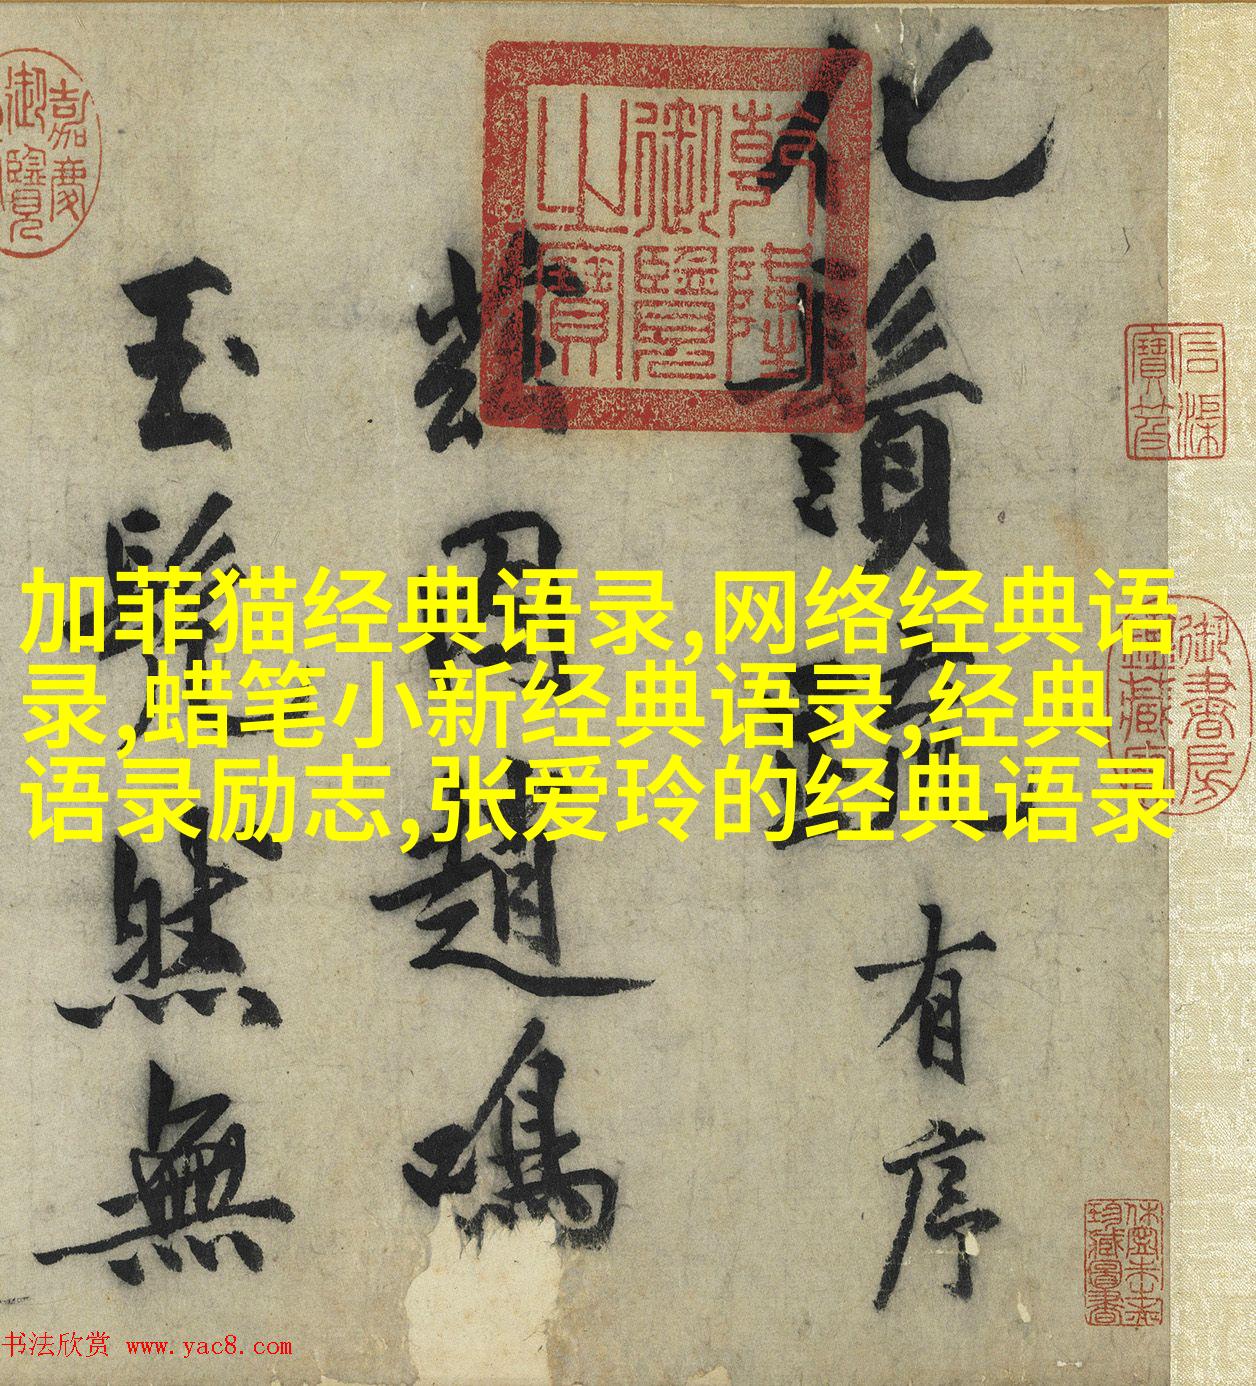 加菲猫经典语录,网络经典语
录,蜡笔小新经典语录,经典
语录励志,张爱玲的经典语录
化鬚疏有序
茲因趙鳴
玉髡然無
乾隆御覽之寶
嘉慶御覽
石渠寶笈
御書房鑒藏寶
书法欣赏 www.yac8.com